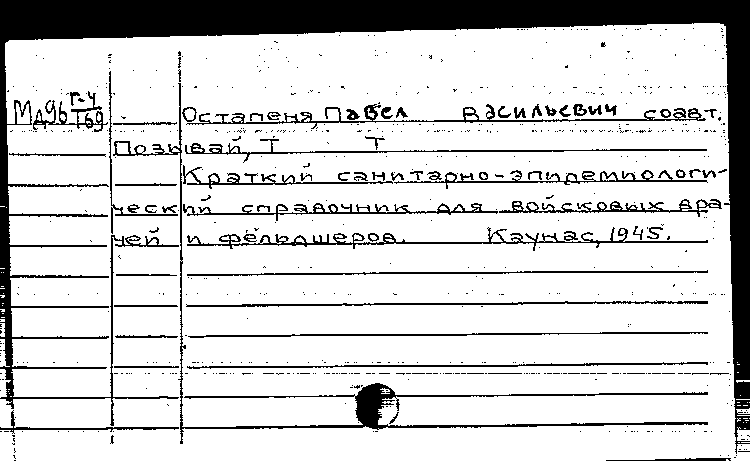 МД96 Г-4
169
Остапеня, Павел Васильевич соавт.
Позывай, Т Т
Краткий санитарно-эпидемиологи-
ческий справочник для войсковых вра-
чей и фельдшеров. Каунас, 1945.